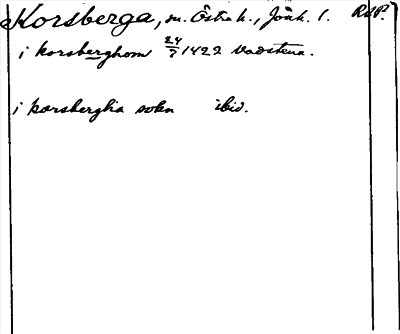 Korsberga, sn. Östra h., Jönk. l. RAP.
i korsberghom 24/7 1422 Vadstena.
i korsberghia sokn ibid.